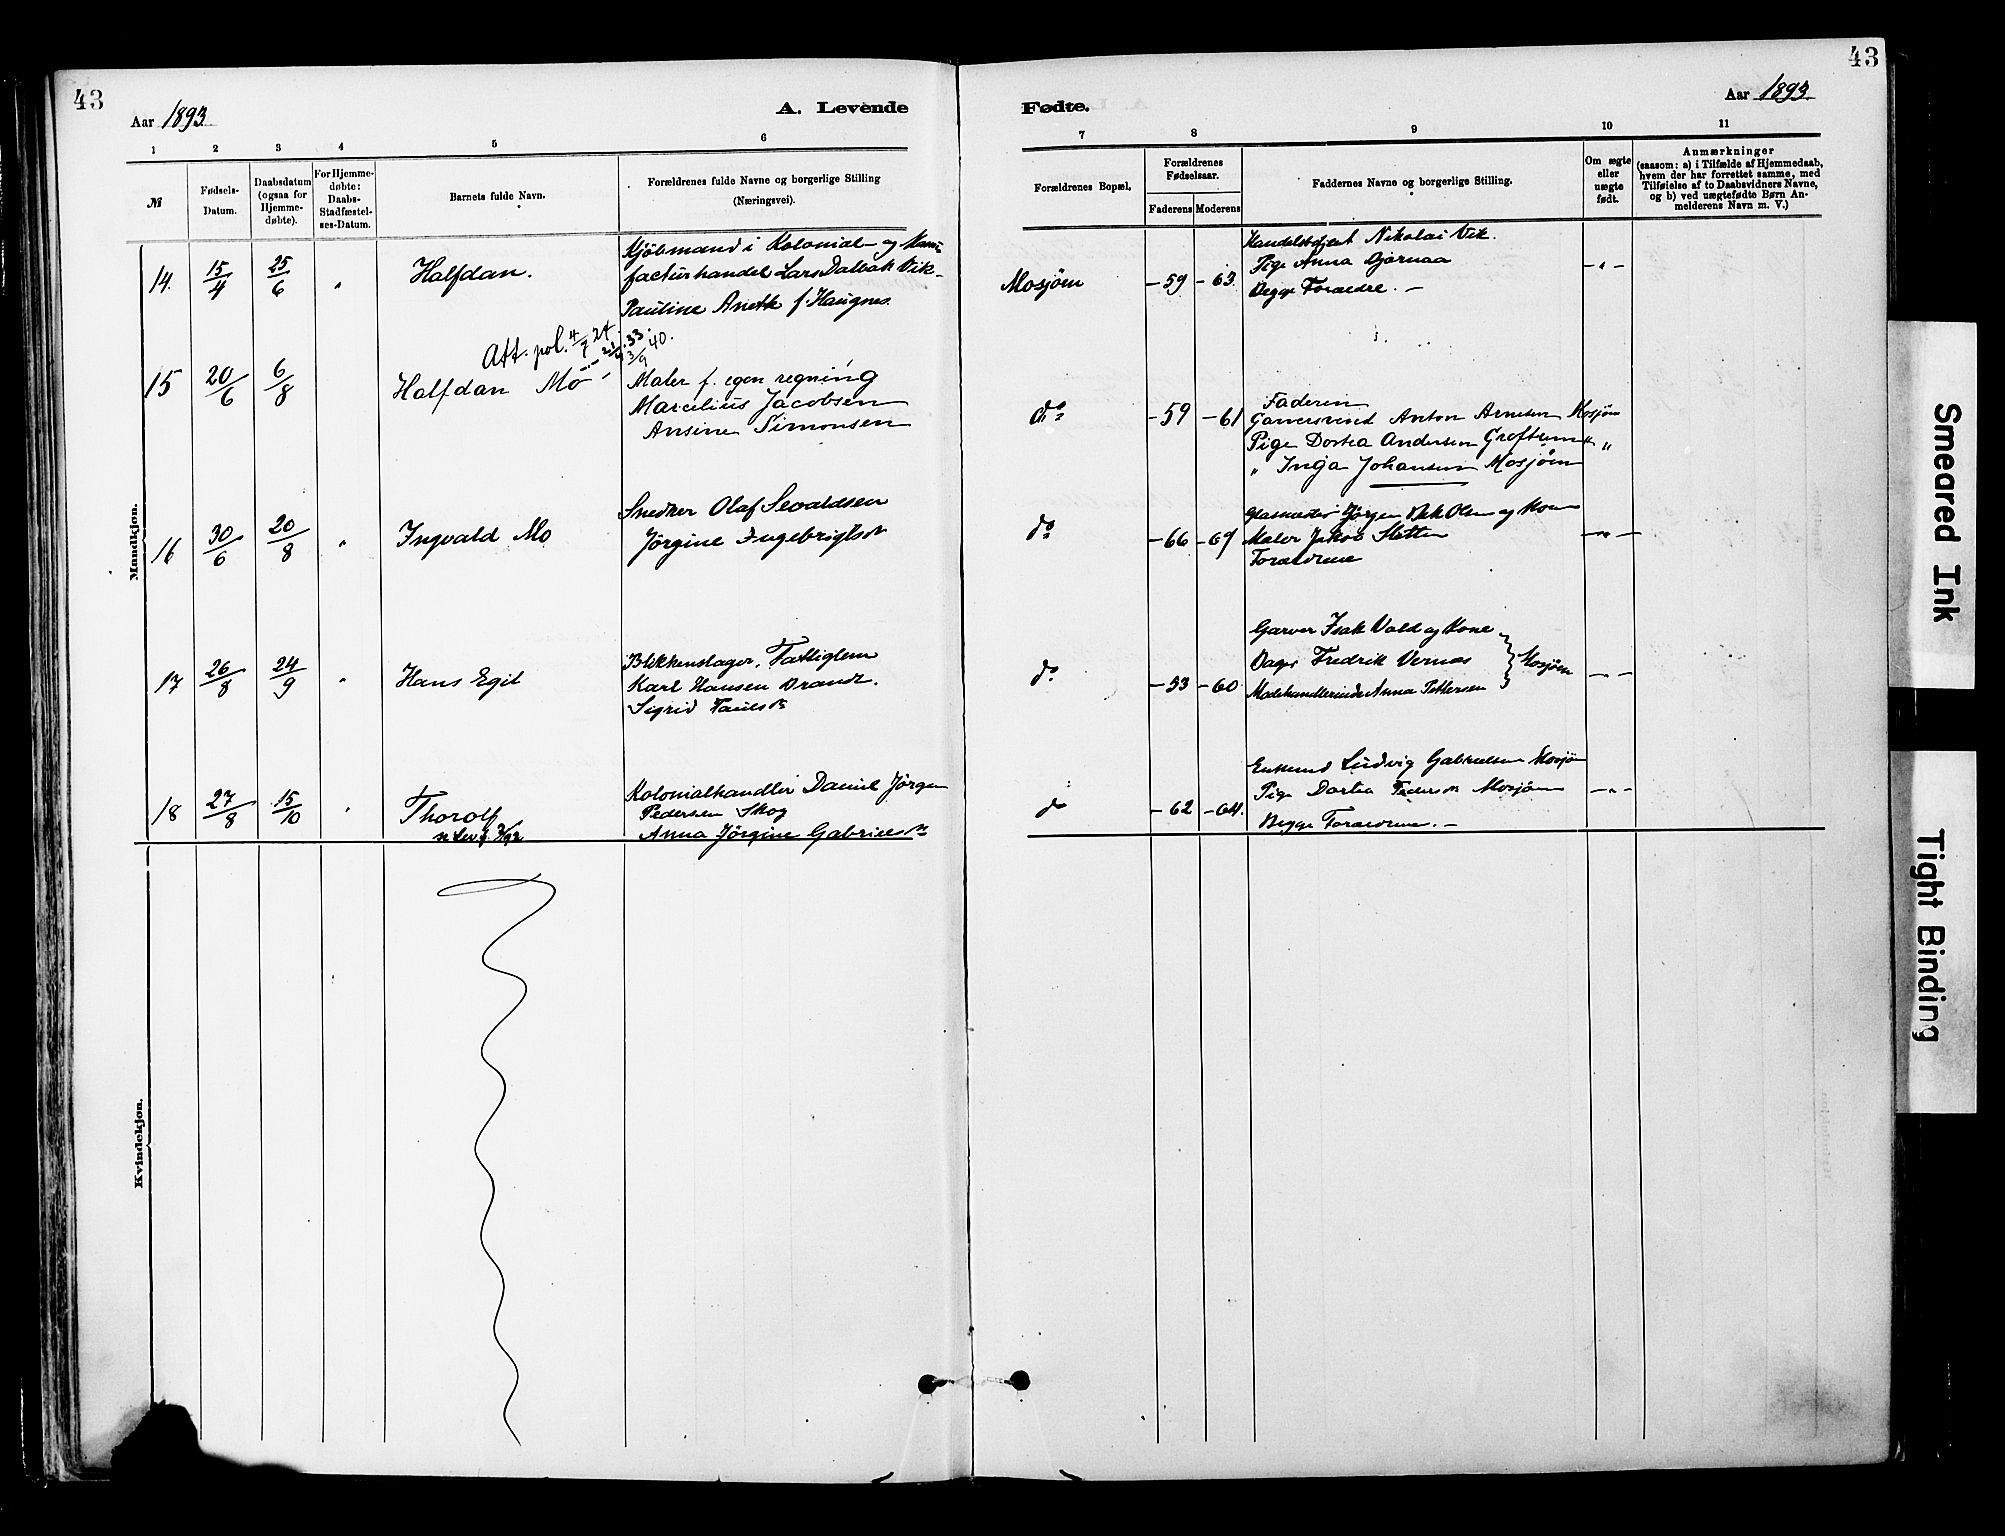 43
Aar 1893
A. Levende
1 2 3 4 5 6
№
Fødsels-Datum.
Daabsdatum (ogsaa for Hjemme-døbte).
For Hjemme-døbte: Daabs-Stadfæstel-ses-Datum.
Barnets fulde Navn.
Forældrenes fulde Navne og borgerlige Stilling (Næringsvei).
Mandkjøn.
14. 15/4 25/6 " Halfdan.
Kjøbmand i Kolonial- og Manu-
facturhandel Lars Dalbak Vik-
Pauline Anette f Haugnes.
Att. pol. 4/7 24.
3/9 40.
15 20/6 6/8 Halfdan Mo
Maler f. egen regning
Marcelius Jacobsen
Ansine Simonsen
16 30/6 20/8 " Ingvald Mo
Snedker Olaf Sevaldsen
Jørgine Ingebrigtsdr
17 26/8 24/9 " Hans Egil
Blikkenslager, Fattiglem
Karl Hansen Brandt.
Sigrid Paulsdr
18 27/8 15/10 " Thorolf
Kolonialhandler Daniel Jørgen
Pedersen Skog
Anna Jørgine Gabrielsdr
Kvindekjøn.
43
Aar 1893.
Fødte.
7 8 9 10 11
Forældrenes Bopæl.
Forældrenes Fødselsaar.
Faderens Moderens
Faddernes Navne og borgerlige Stilling.
Om ægte eller uægte født.
Anmærkninger
(saasom: a) i Tilfælde af Hjemmedaab,
hvem der har forrettet samme, med
Tilføielse af to Daabsvidners Navne,
og b) ved uægtefødte Børn An-
melderens Navn m. V.)
Mosjøen -59 -63
Handelsbetjent Nikolai Vik.
Pige Anna Bjørnaa
Begge Forældre. -
-"-
do -59 -61
Faderen
Garversvend Anton Arnesen Mosjøen
Pige Dortea Andersen
" Inga Johansen Mosjøen
"
do -66 -69
Jørgen Olsen og Kone
Maler Jakob Sletten
Forældrene
-"-
do -53 -60
Garver Isak Vold og Kone
Bager Fredrik Vernæs
Modehandlerinde Anna Pettersen
Mosjøen
-"-
do -62 -64.
Enkemd Ludvig Gabrielsen Mosjøen
Pige Dortea Pedersdr Mosjøen
Begge Forældrene. -
-"-
Smeared Ink
Tight Binding